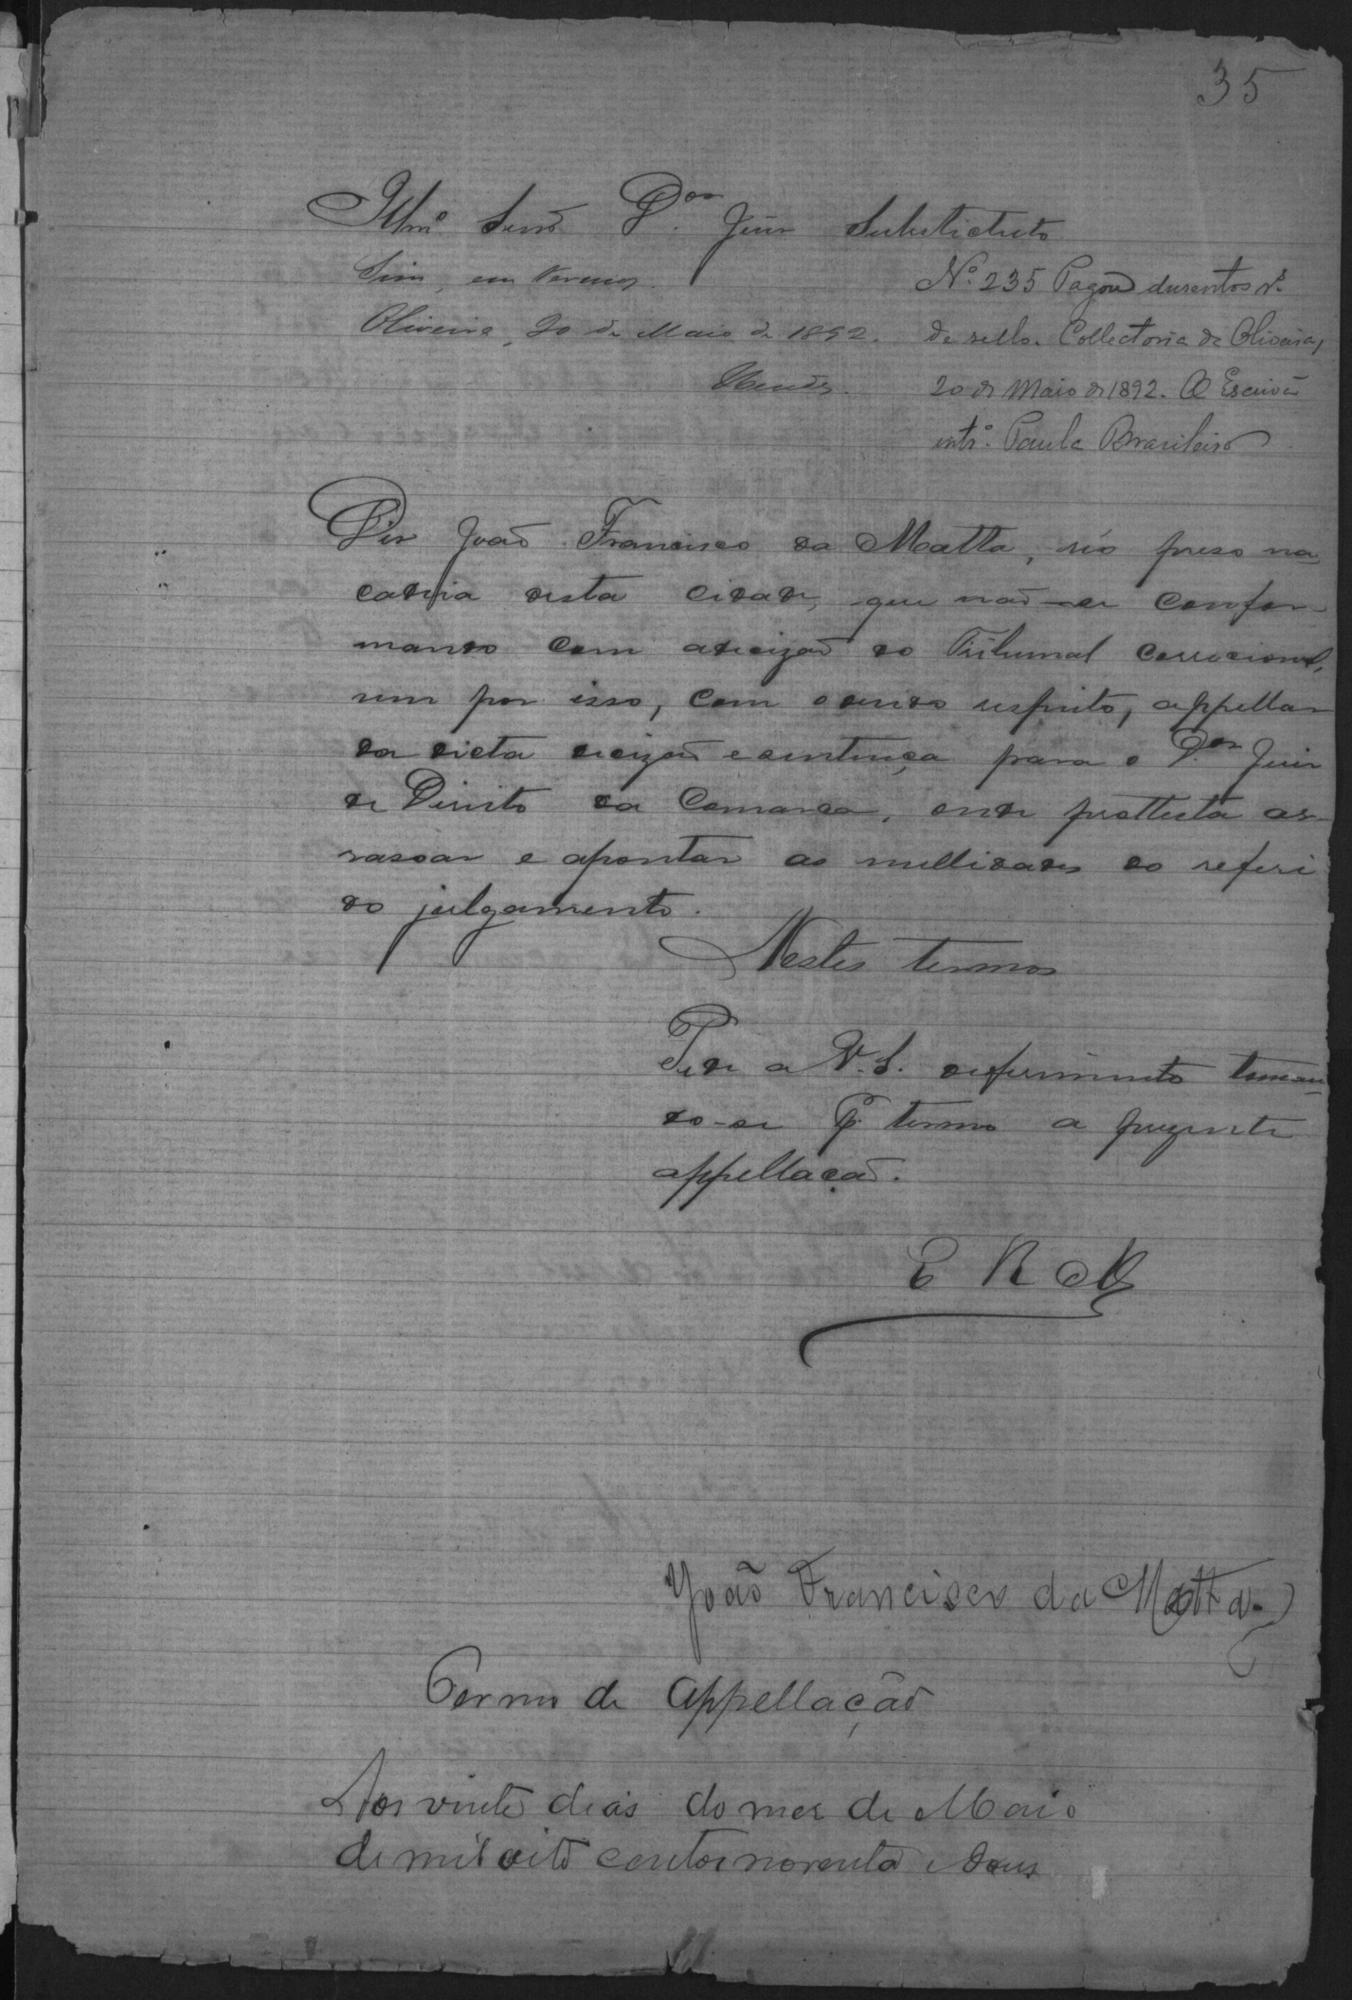 35
Illmº Senr Dor Juiz Substictuto
Sim, em termos.
Oliveira, 20 de Maio de 1892.
Nº 235 Pagou dusentos rs
de sello. Collectoria de Oliveira,
20 de Maio de 1892. O Escivão
intº. Paula Brasileiro
Diz João Francisco da Matta, réo preso na
cadeia desta cidade, que não se confor-
mando com a decizão do Tribunal correcional,
vem por isso, com o devido respeito, appellar
da dicta decizão e sentença para o Dor Juiz
de Direito da Comarca, onde prottesta ar-
rasoar e apontar as nullidades do referi
do julgamento.
Nestes termos
Pede a V. S. deferimento toman-
do-se p. termo a prezente
appellação.
E R M
João Francisco da Matta
Termo de Appellação
Aos vinte dias do mez de Maio
de mil oito centos noventa e dous